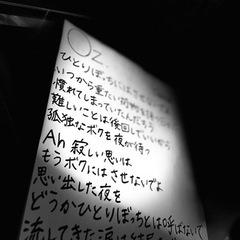 Oz.
ひとりぼっちにはさせないでよ
いつから重たい荷物を持つ
慣れてしまっていたんだろう
難しいことは後回していいから
孤独なボクを夜が待つ
Ah 寂しい思いは
もうボクにはさせないでよ
思い出した夜を
どうかひとりぼっちとは呼ばないで
流してきた涙は